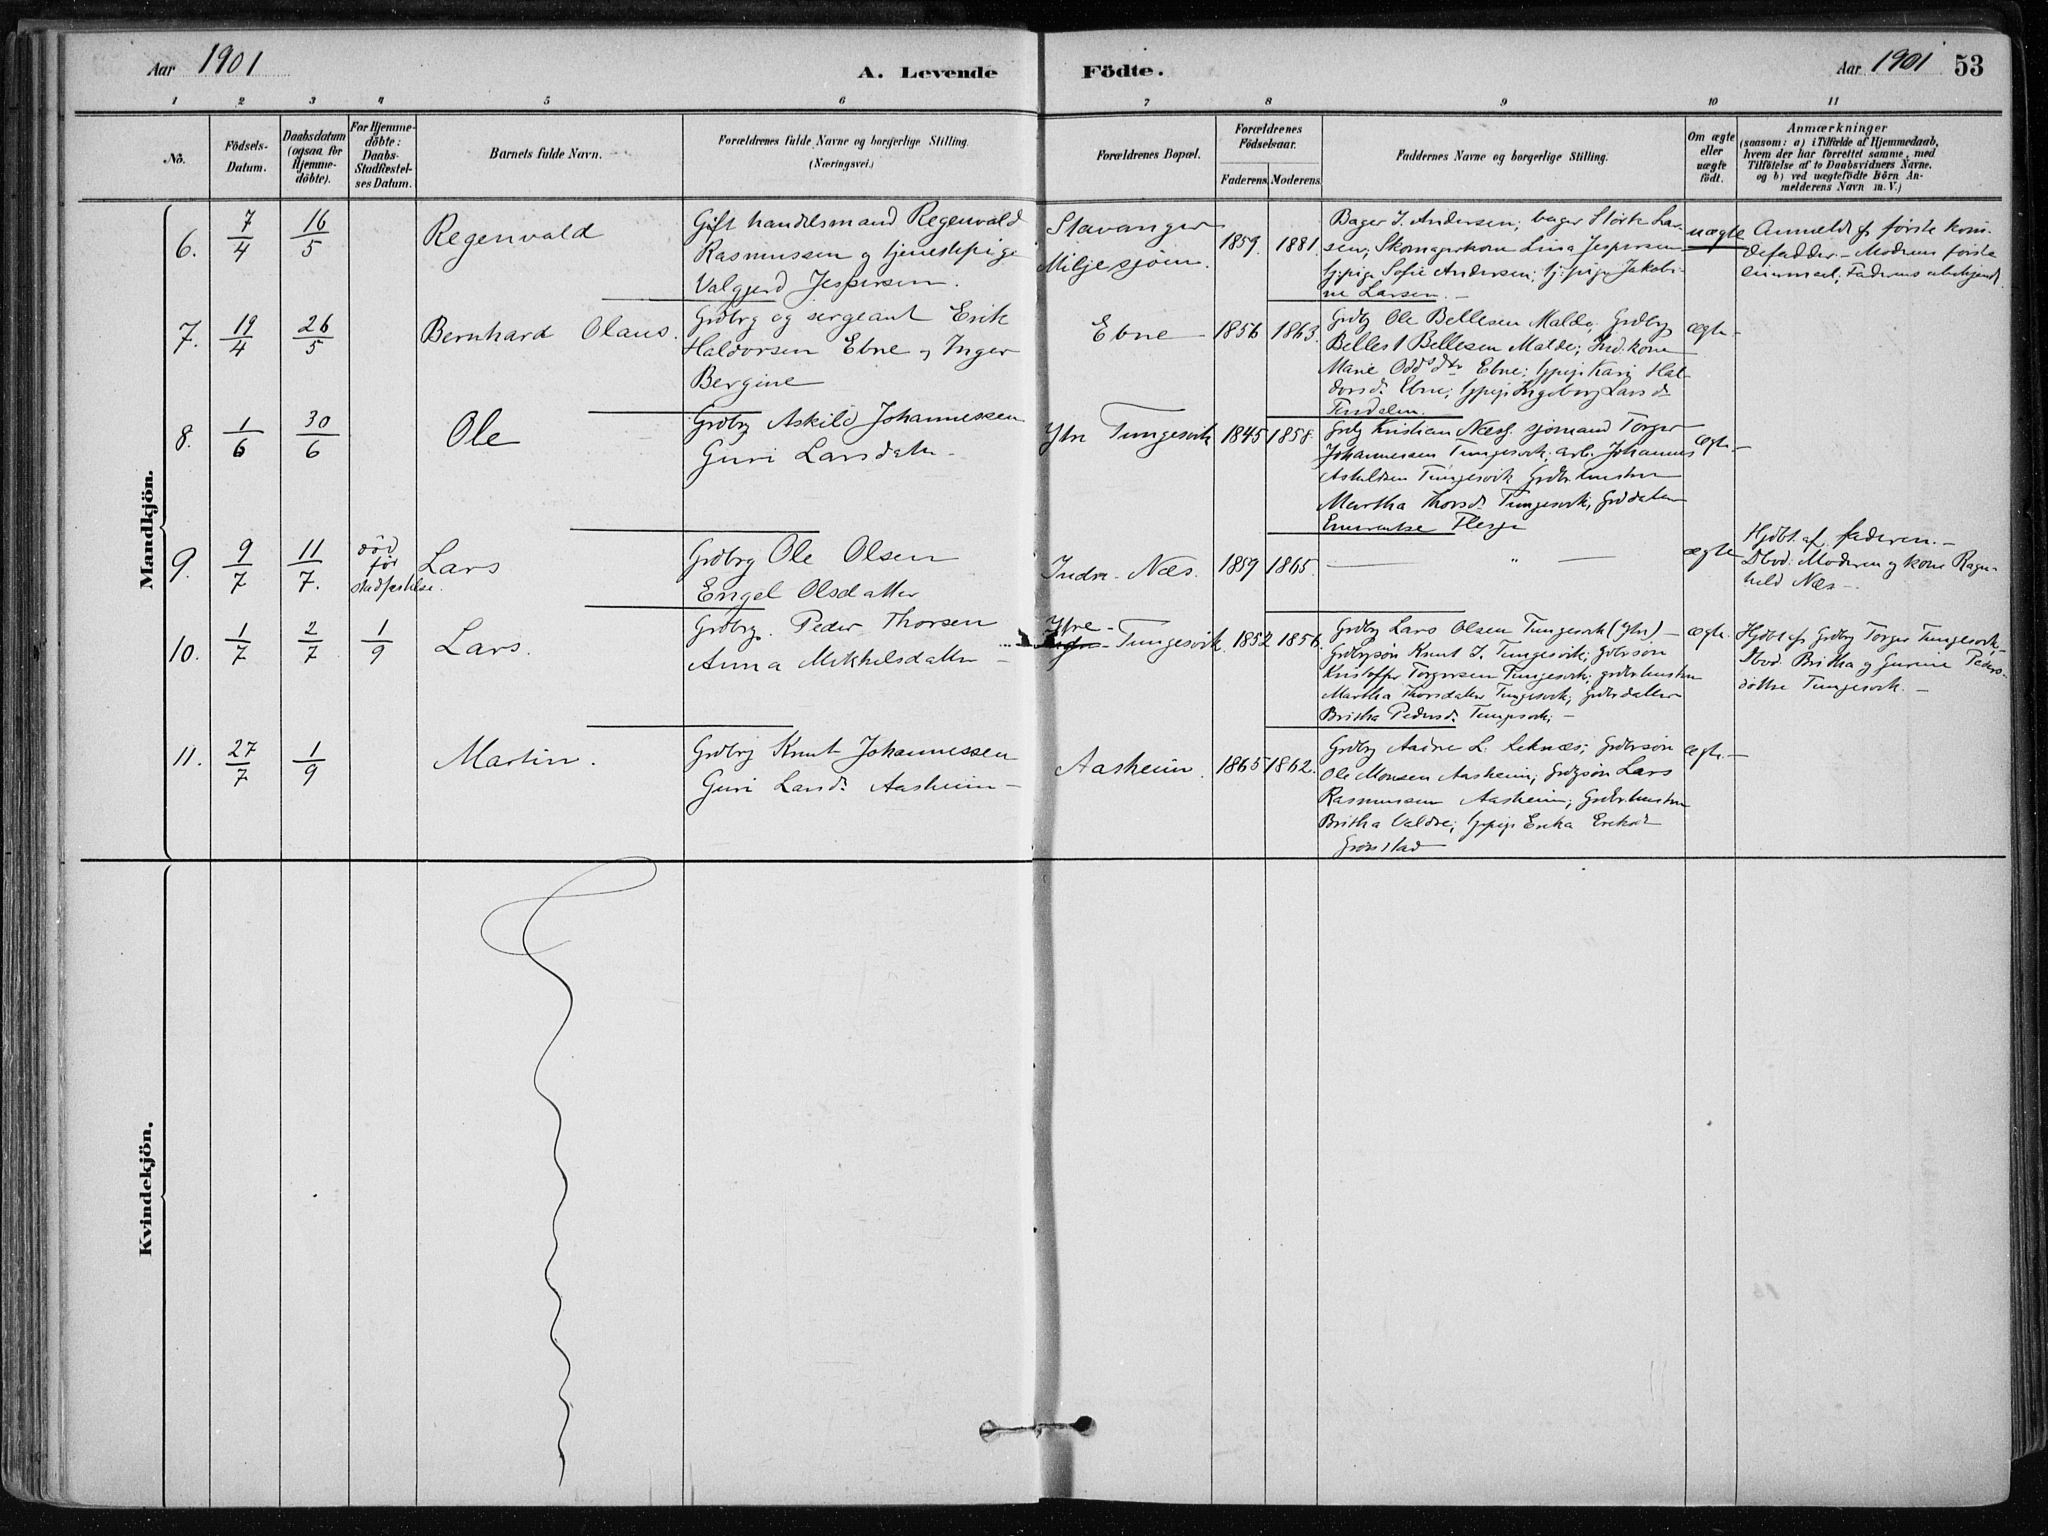 Aar 1901
A. Levende Födte.
Aar 1901 53
1 2 3 4 5 6 7 8 9 10 11
No.
Födsels-
Datum.
Daabsdatum
(ogsaa for
Hjemme-
döbte).
For Hjemme-
döbte:
Daabs-
Stadfæstel-
ses Datum.
Barnets fulde Navn.
Forældrenes fulde Navne og borgerlige Stilling.
(Næringsvei.)
Forældrenes Bopæl.
Forældrenes
Födselsaar.
Faderens. Moderens.
Faddernes Navne og borgerlige Stilling.
Om ægte
eller
uægte
födt.
Anmærkninger
(saasom: a) i Tilfælde af Hjemmedaab,
hvem der har forrettet samme, med
Tilföielse af to Daabsvidners Navne.
og b) ved uægtefödte Börn An-
melderens Navn m. V.)
Mandkjön.
6. 7/4 16/5
Regenvald
Gift handelsmand Regenvald
Rasmussen og tjenestepige
Valgjerd Jespersen.
Stavanger
Miljesjøen.
1859. 1881.
Bager I. Andersen; bager Størk Lar-
sen; Skomagerkone Lina Jespersen
tj.pige Sofie Andersen; tj.pige Jakobi-
ne Larsen. —
uægte
Anmeldt af første kom-
defadder. — Moderens første
leiermaal, Faderens ubekjendt.
7. 19/4 26/5
Bernhard Olaus.
Grdbrg og sergeant Erik
Haldorsen Ebne og Inger
Bergine
Ebne
1856 1863.
Grdbg Ole Bellesen Malde, Grdbrg
Bellest Bellesen Malde; Ind.kone
Marie Oddsdtr Ebne; tjpige Kari Hal-
dorsd. Ebne; tjpige Ingeborg Larsd.
Tindalen.
ægte —
8. 1/6 30/6
Ole
Grdbg Askild Johannessen
Guri Larsdatr —
Ytre Tungesvik
1845 1858.
Grdbg Kristian Næs; sjømand Torger
Johannessen Tungesvik; arb. Johannes
Askildsen Tungesvik Grdbr.hustru
Martha Thorsd. Tungesvik; Grddatter
Emerentse Flesje
ægte —
9. 9/7 11/7.
død
før
stadfæstelse.
Lars
Grdbrg Ole Olsen
Engel Olsdatter
Indre Næs.
1859 1865.
— " —
ægte
Hjdbt. af faderen. —
Dbvd: Moderen og kone Ragn-
hild Næs —
10. 1/7 2/7 1/9
Lars.
Grdbrg. Peder Thorsen
Anna Mikkelsdatter —
Ytre-
Tungesvik.
1852 1856.
Grdbrg Lars Olsen Tungesvik (Ytre) —
Grdbrgsøn Knut I. Tungesvik; gdbrsøn
Kristoffer Torgersen Tungesvik; grdbr.hustru
Martha Thorsdatter Tungesvik; grdbrdatter
Britha Pedersd. Tungesvik; —
ægte.
Hjdbt af Grdbrg Torger Tungesvik,
Dbvd. Britha og Gurine Peders-
døttre Tungesvik. —
11. 27/7 1/9
Martin.
Grdbrg Knut Johannessen
Guri Larsd. Aasheim —
Aasheim.
1865 1862.
Grdbrg Andre L. Leknæs; Grdbrsøn
Ole Monsen Aasheim; Grdbrgsøn Lars
Rasmussen Aasheim; Grdbr.hustru
Britha Valdre; tjpige Erika Eriksd.
Grønstad
ægte. —
Kvindekjön.